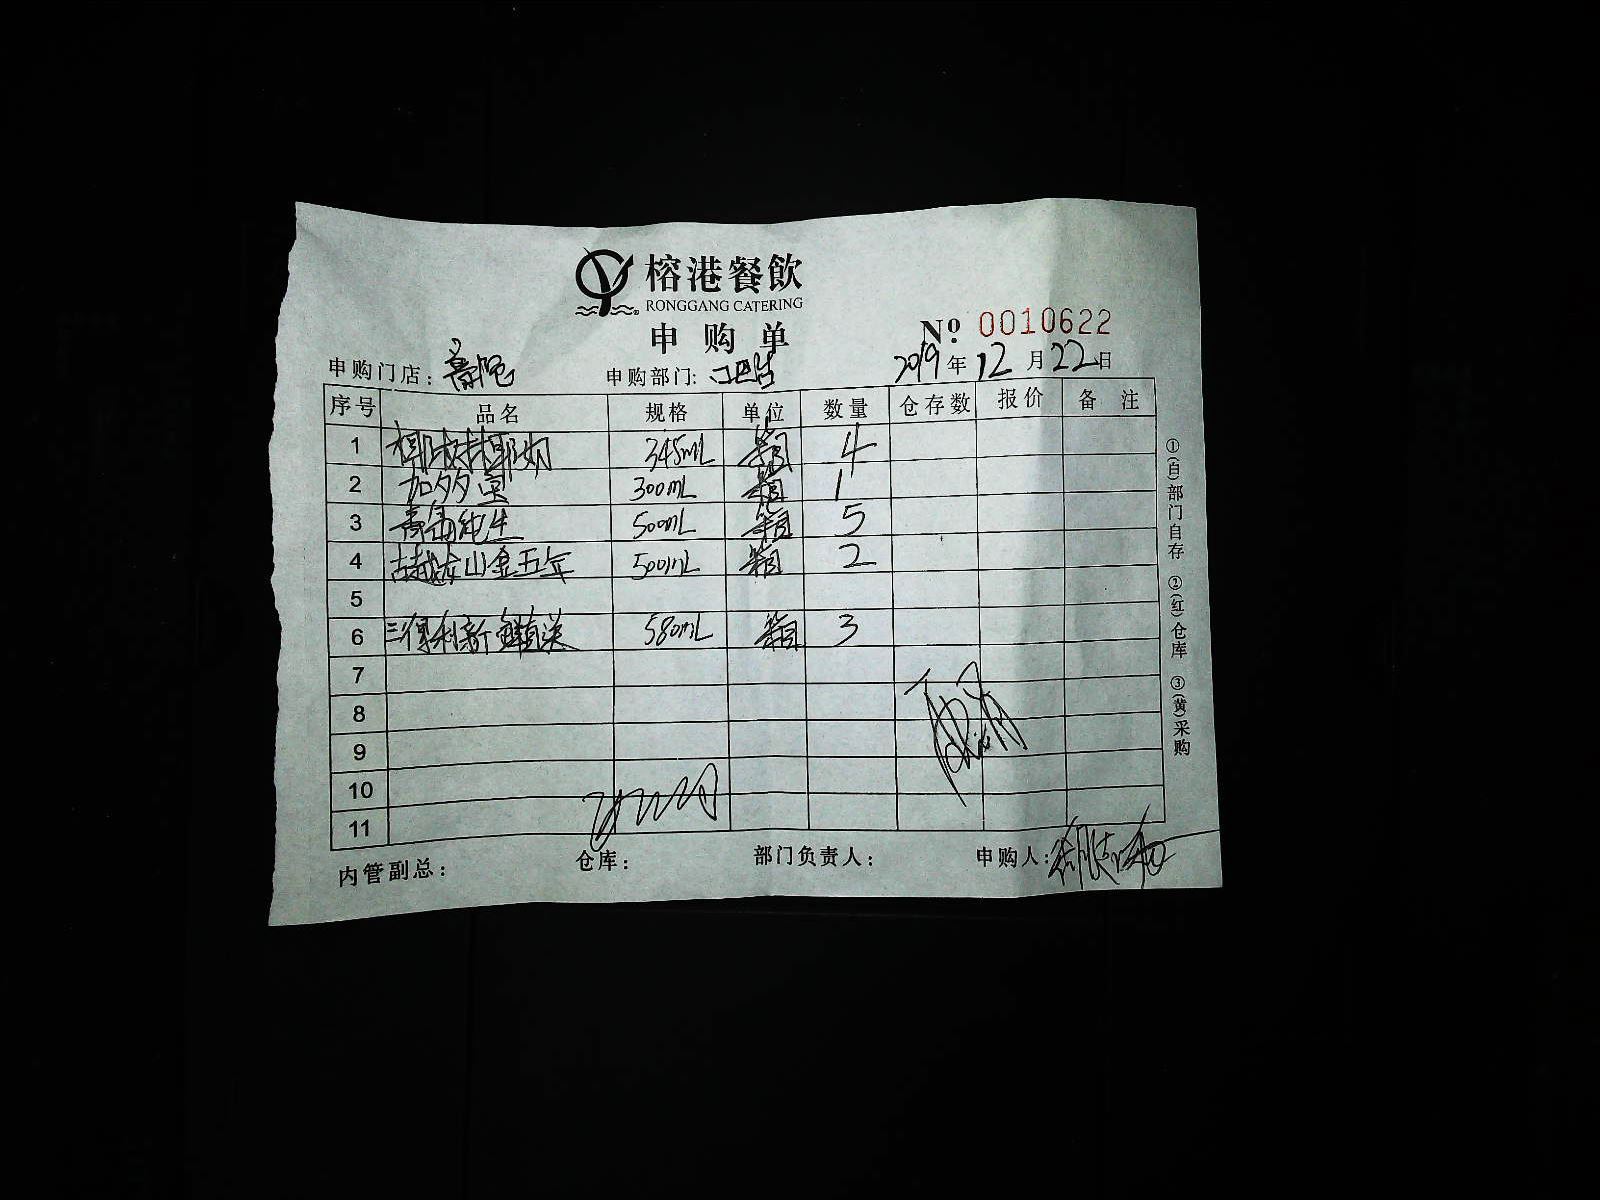 榕港餐飲
RONGGANG CATERING
申购单
№ 0010622
申购门店: 申购部门: 吧台 2019年12月22日
序号 品名 规格 单位 数量 仓存数 报价 备注
1 椰树椰奶 345mL 箱 4
2 加多宝 300mL 箱 1
3 青岛纯生 500mL 箱 5
4 古越龙山金五年 500mL 箱 2
5
6 三得利新鲜直送 580mL 箱 3
7
8
9
10
11
内管副总: 仓库: 部门负责人: 申购人:
①(白)部门自存 ②(红)仓库 ③(黄)采购